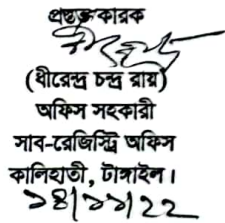 প্রস্তুতকারক
(ধীরেন্দ্র চন্দ্র রায়)
অফিস সহকারী
সাব-রেজিস্ট্রি অফিস
কালিহাতী, টাঙ্গাইল।
১৪/১১/২২